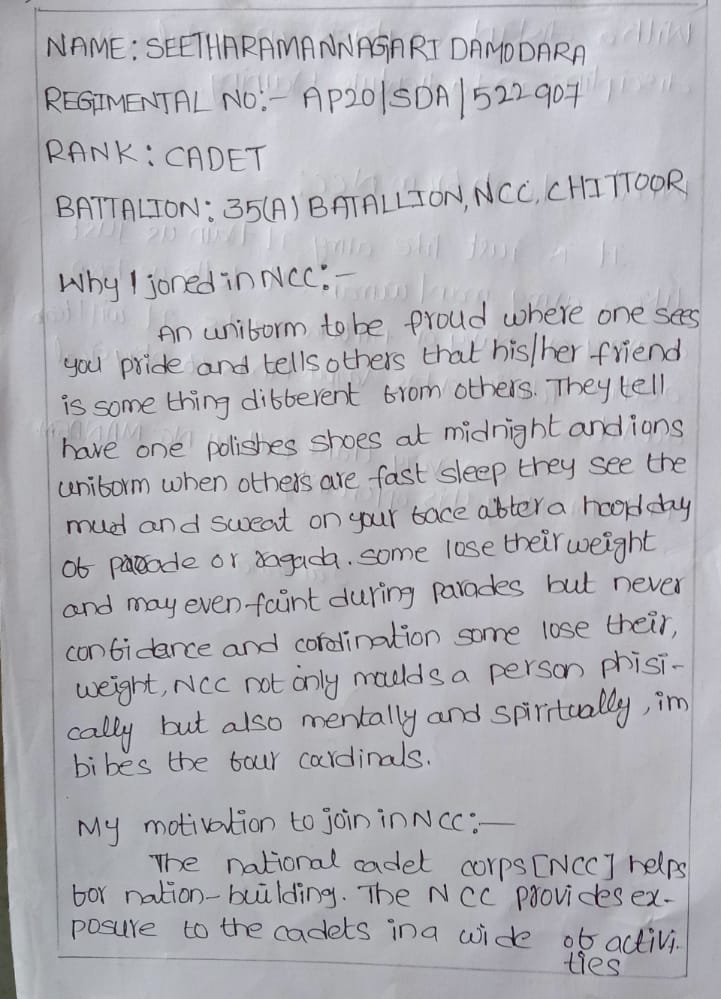 NAME: SEETHARAMANNAGARI DAMODARA
REGIMENTAL NO:- AP20|SDA|522907
RANK: CADET
BATTALION: 35(A) BATALLION, NCC, CHITTOOR
Why I joned in NCC:-
An uniform to be proud where one sees
you pride and tells others that his/her friend
is some thing different from others. They tell
have one polishes shoes at midnight and ions
uniform when others are fast sleep they see the
mud and sweat on your face after a day
of parade or ragada. some lose their weight
and may even faint during parades but never
confidance and cordination some lose their,
weight, NCC not only moulds a person phisi-
cally but also mentally and spirtually, im
bibes the four cardinals.
My motivation to join in NCC:-
The national cadet corps [NCC] helps
for nation-building. The NCC provides ex-
posure to the cadets in a wide of activi-
ties